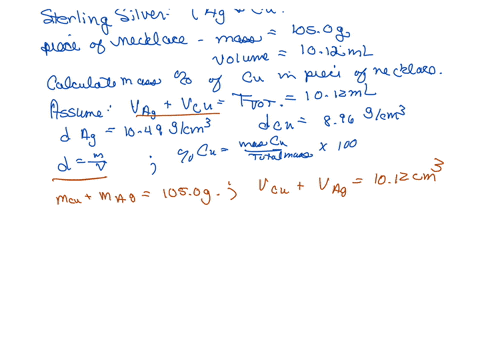 Sterling Silver: (Ag & Cu.
piece of necklace - mass = 105.0g
volume = 10.12mL
Calculate mass % of Cu in piece of necklace.
Assume: V Ag + V Cu = T TOT. = 10.12 mL
d Ag = 10.49 g/cm³ d Cu = 8.96 g/cm³
d = m/V ; % Cu = mass Cu / Total mass × 100
m Cu + m Ag = 105.0g. ; V Cu + V Ag = 10.12 cm³